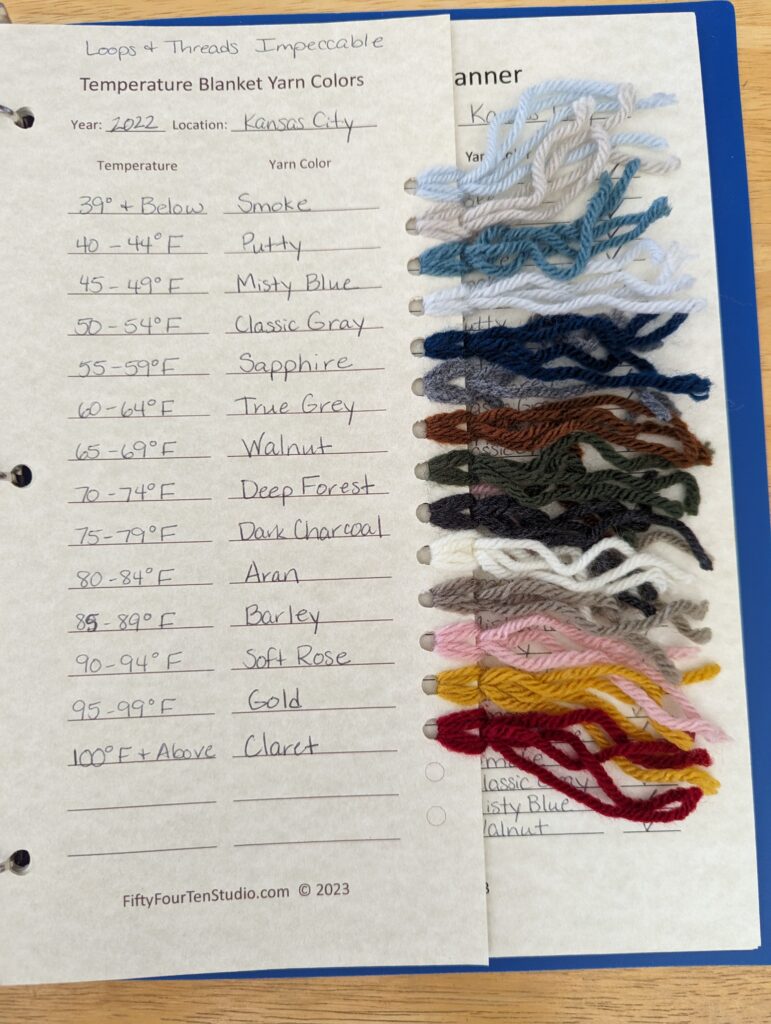 Loops & Threads Impeccable
Temperature Blanket Yarn Colors
Year: 2022 Location: Kansas City
Temperature Yarn Color
39° + Below Smoke
40 - 44° F Putty
45 - 49° F Misty Blue
50 - 54° F Classic Gray
55 - 59° F Sapphire
60 - 64° F True Grey
65 - 69° F Walnut
70 - 74° F Deep Forest
75 - 79° F Dark Charcoal
80 - 84° F Aran
85 - 89° F Barley
90 - 94° F Soft Rose
95 - 99° F Gold
100° F + Above Claret
FiftyFourTenStudio.com © 2023
anner
Ka
Yar
utty
moke
lassic Gray
isty Blue
alnut
3